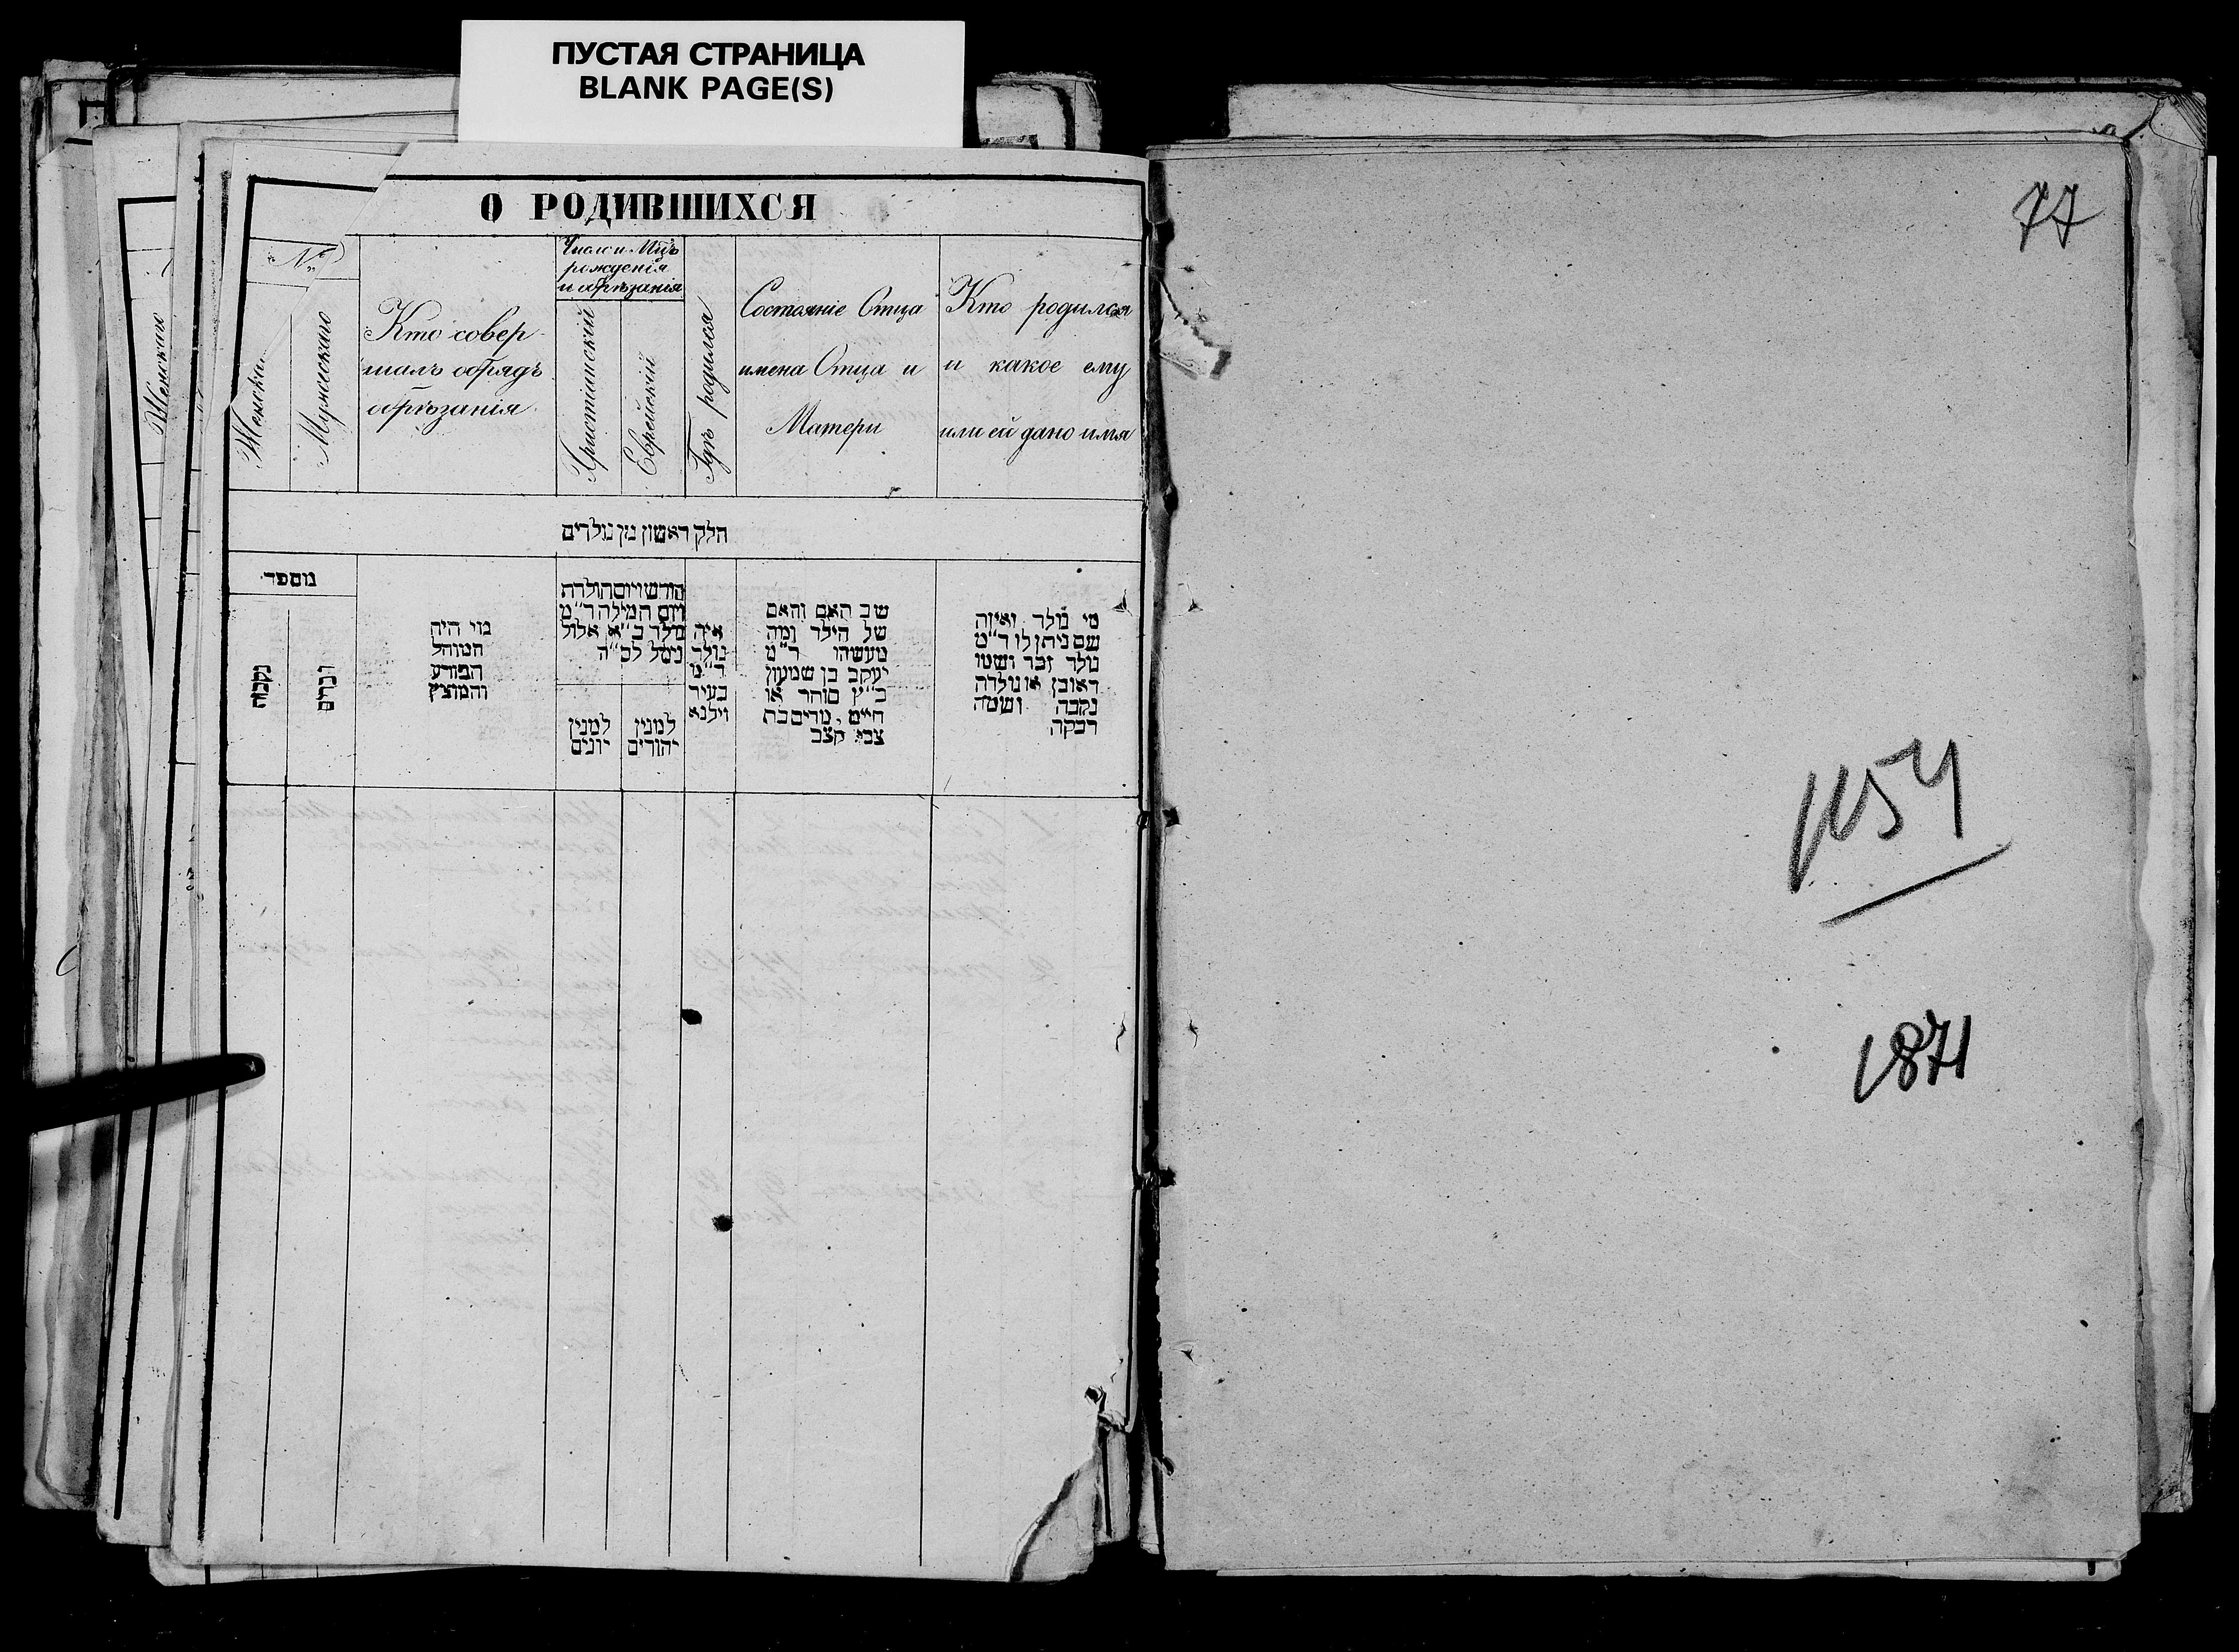 ПУСТАЯ СТРАНИЦА
BLANK PAGE(S)
О РОДИВШИХСЯ
№
Женскаго
Женска
Мужескаго
Кто совер-
шалъ обрядъ
обрѣзанія.
Число и Мцъ
рожденія
и обрѣзанія
Христіанскій
Еврейскій
Гдѣ родился
Состояніе Отца
имена Отца и
Матери
Кто родился
и какое ему
или ей дано имя
חלק ראשון מן נולדים
מספר
נקבה
זכרים
מי היה
המוהל
הפורע
והמוצץ
חודש ויום הולדת
ויום המילה ד״מ
נולד כ״א אלול
נימל לס״ה
למנין
יונים
למנין
יהודים
איה
נולד
ד״מ
בעיר
וילנא
שב האם והאם
של הילד ומה
מעשהו ד״מ
יעקב בן שמעון
כ״ץ סוחר או
חייט, מרים בת
צבי קצב
מי נולד ואיזה
שם ניתן לו ד״מ
נולד זכר ושמו
ראובן או נולדה
נקבה ושמה
רבקה
77
1154
1871